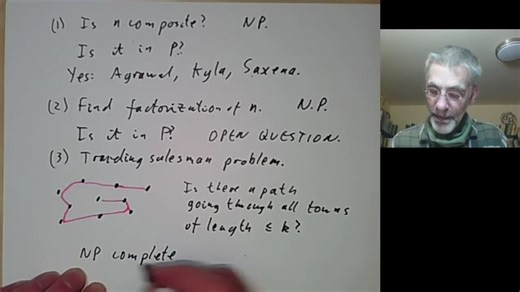 (1) Is n composite? NP.
Is it in P?
Yes: Agrawal, Kyla, Saxena.
(2) Find factorization of n. N.P.
Is it in P? OPEN QUESTION.
(3) Traveling salesman problem.
Is there a path
going through all towns
of length ≤ k?
NP complete